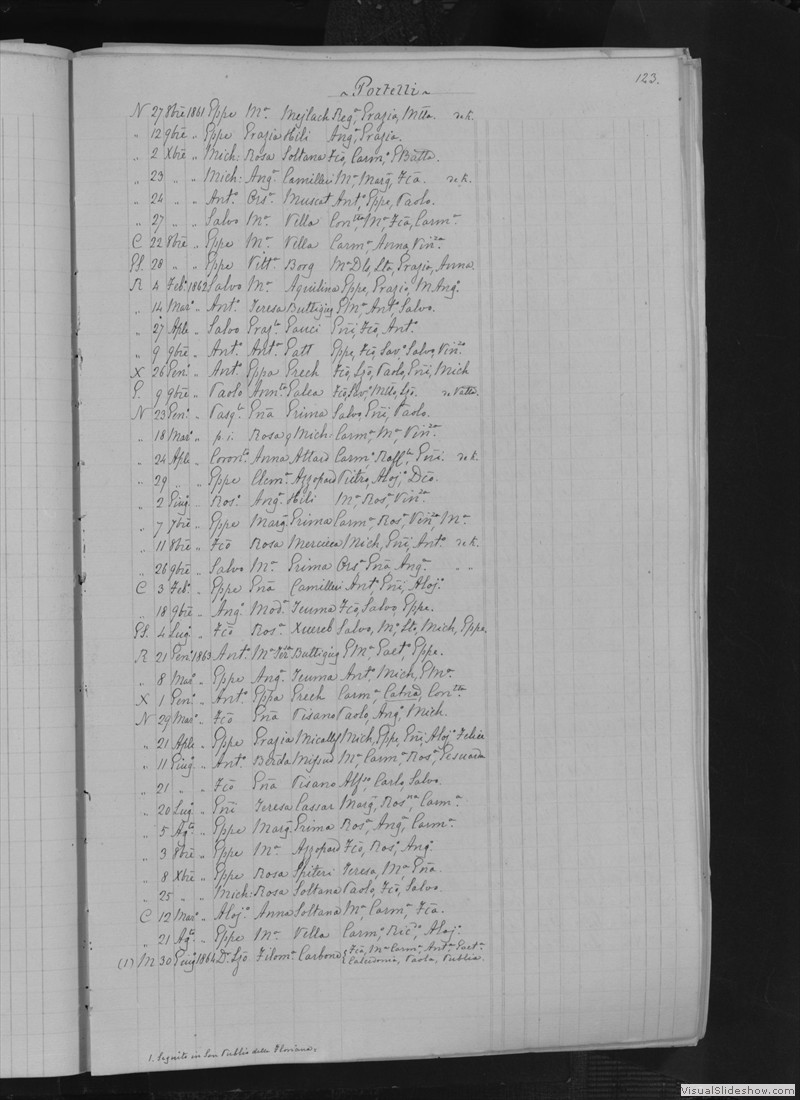 123.
~ Portelli ~
N 27 8bre 1861 Gppe Mª Mejlach Regª, Grazia, Mtta. de k.
„ 12 9bre „ Gppe Grazia Hili Angª, Grazia.
„ 2 Xbre „ Mich: Rosa Soltana Fco, Carmº, GBatta.
„ 23 „ „ Mich: Angª Camilleri Mª, Margª, Fca. de k.
„ 24 „ „ Antº Orsª Muscat Antº, Gppe, Paolo.
„ 27 „ „ Salvo Mª Vella Contta, Mª, Fca, Carmª
C 22 8bre „ Gppe Mª Vella Carmª, Anna, Vinza
PS. 28 „ „ Gppe Vittª Borg Mª Dls, Lta, Grazia, Anna.
R 4 Febº 1862 Salvo Mª Aquilina Gppe, Grazio, M Angº
„ 14 Marº „ Antº Teresa Buttigieg GMª, Antº, Salvo.
„ 27 Aple „ Salvo Grazª Gauci Gni, Fco, Antº
„ 9 9bre „ Antº Antª Gatt Gppe, Fco, Savº, Salvo, Vinzo
X 26 Genº „ Antº Gppa Grech Fco, Ljo, Paolo, Gni, Mich
G. 9 9bre „ Paolo Annta Galea Fco, Mtto, Ljo.
N 23 Genº „ Pasqle Gna Grima Salvo, Gni, Paolo.
„ 18 Marº „ p.i. Rosa q Mich Carmª, Mª, Vinza
„ 24 Aple „ Anna Attard Carmº, Raffle, Gni. de k.
„ 29 „ „ Gppe Clemª Azzopard Pietro, Alojº, Dco.
„ 2 Giug „ Rosº Angª Hili Mª, Rosª, Vinza
„ 7 7bre „ Gppe Margª Grima Carmª, Rosª, Vinza, Mª
„ 11 8bre „ Fco Rosa Mercieca Mich, Gni, Antº de k.
„ 26 9bre „ Salvo Mª Grima Orsª, Gna, Angª „ „
C 3 Febº „ Gppe Gna Camilleri Antº, Gni, Alojº
„ 18 9bre „ Angº Modª Teuma Fco, Salvo, Gppe.
PS. 4 Lug „ Fco Rosª Xuereb Salvo, Mª Lta, Mich, Gppe.
R 21 Genº 1863 Antº Mª Terª Buttigieg GMª, Gaetº, Gppe.
„ 8 Marº „ Gppe Angª Teuma Antº, Mich, GMª
X 1 Genº „ Antº Gppa Grech Carmª, Catna, Contta
N 29 Marº „ Fco Gna Pisano Paolo, Angº, Mich.
„ 21 Aple „ Gppe Grazia Micallef Mich, Gppe, Gni, Alojº, Felice
„ 11 Giug „ Antº Berda Mifsud Mª, Carmª, Rosª, Gesuarda
„ 21 „ „ Fco Gna Pisano Alfso, Carlo, Salvo.
„ 20 Lug „ Gni Teresa Cassar Margª, Rosna, Carmª
„ 5 Agto „ Gppe Margª Grima Rosª, Angª, Carmª
„ 3 8bre „ Gppe Mª Azzopard Fco, Rosº, Angº
„ 8 Xbre „ Gppe Rosa Spiteri Teresa, Mª, Gna.
„ 25 „ „ Mich: Rosa Soltana Paolo, Fco, Salvo.
C 12 Marº „ Alojº Anna Soltana Mª, Carmª, Fca.
„ 21 Agto „ Gppe Mª Vella Carmº, Ricdo, Alojº
(1) M 30 Giug 1864 Dr. Ljo Filomª Carbone { Fco, Mª Carmª, Antª, Gaetª
Calcedonia, Paola, Publia.
1. Seguito in San Publio della Floriana.
VisualSlideshow.com